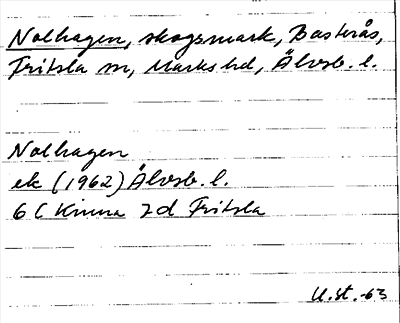 Nolhagen, skogsmark, Basterås,
Fritsla sn, Marks hd, Älvsb. l.
Nolhagen
ek (1962) Älvsb. l.
6 C Kinna 7d Fritsla
U.st.-63